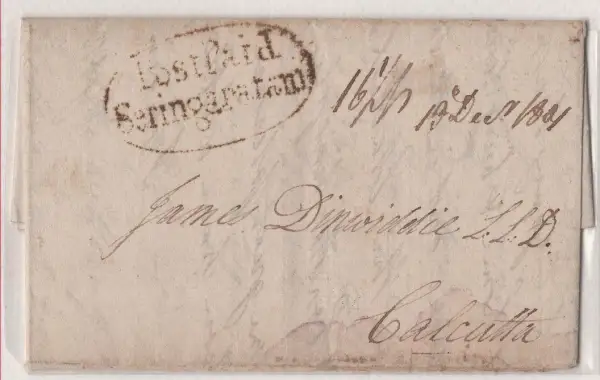 Post Paid
Seringapatam
13 Decr 1801
James Dinwiddie L.L.D.
Calcutta